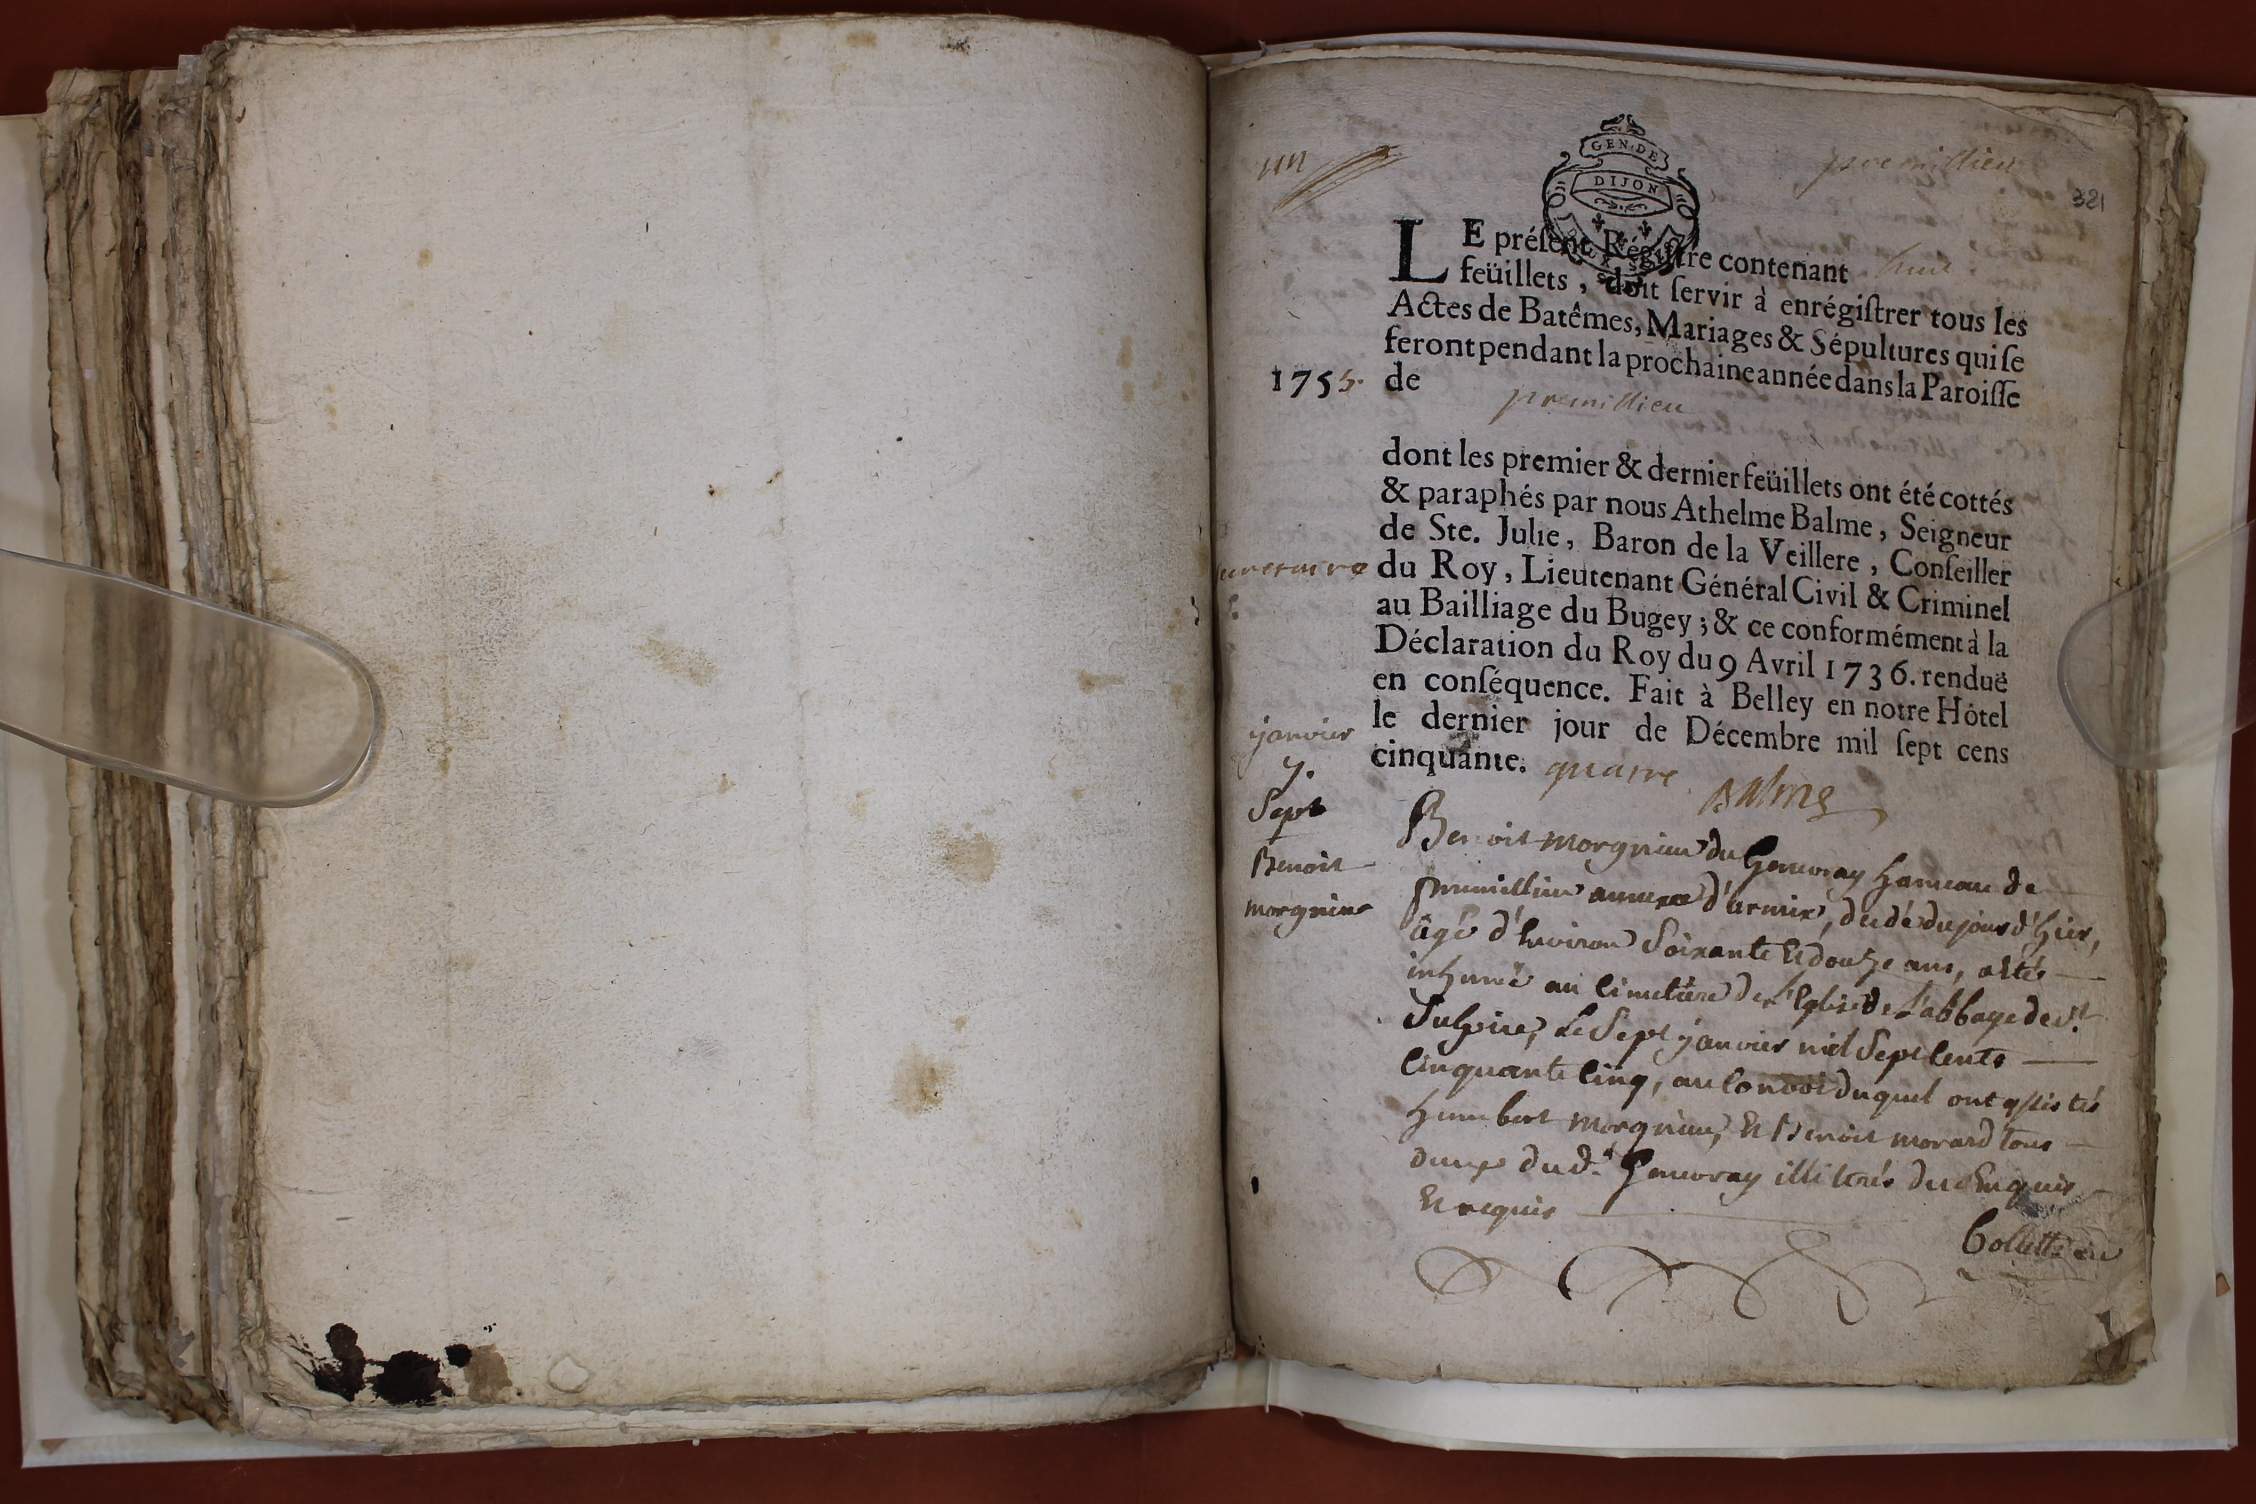 un
premillieu
321
GEN. DE
DIJON
LE préſent Régiſtre contenant huit
feüillets, doit ſervir à enrégiſtrer tous les
Actes de Batêmes, Mariages & Sépultures qui ſe
feront pendant la prochaine année dans la Paroiſſe
1755. de
premillieu
dont les premier & dernier feüillets ont été cottés
& paraphés par nous Athelme Balme, Seigneur
de Ste. Julie, Baron de la Veillere, Conſeiller
du Roy, Lieutenant Général Civil & Criminel
au Bailliage du Bugey; & ce conformément à la
Déclaration du Roy du 9 Avril 1736. renduë
en conſéquence. Fait à Belley en notre Hôtel
le dernier jour de Décembre mil ſept cens
cinquante. quatre Balme
janvier
7.
Sept
Benoit
morgnieu
Benoit morgnieu du Genevray hameau de
premillieu annexe d'armix, decédé du jour d'hier,
âgé d'Environ Soixante Et douze ans, a Eté
inhumé au Cimetiere de L'Eglise de L'abbaye de St.
Sulpice, Le Sept janvier mil Sept Cents
Cinquante Cinq, au Convoi duquel ont assistés
humbert morgnieu, Et Benoit morard tous
deux du d.t Genevray illiterés de ce Enquis
Et requis